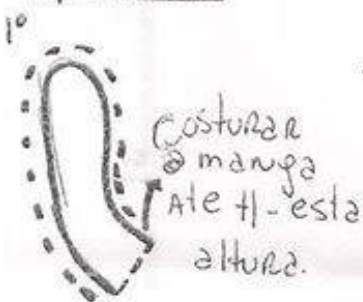 1º
Costurar
a manga
Ate +|- esta
altura.